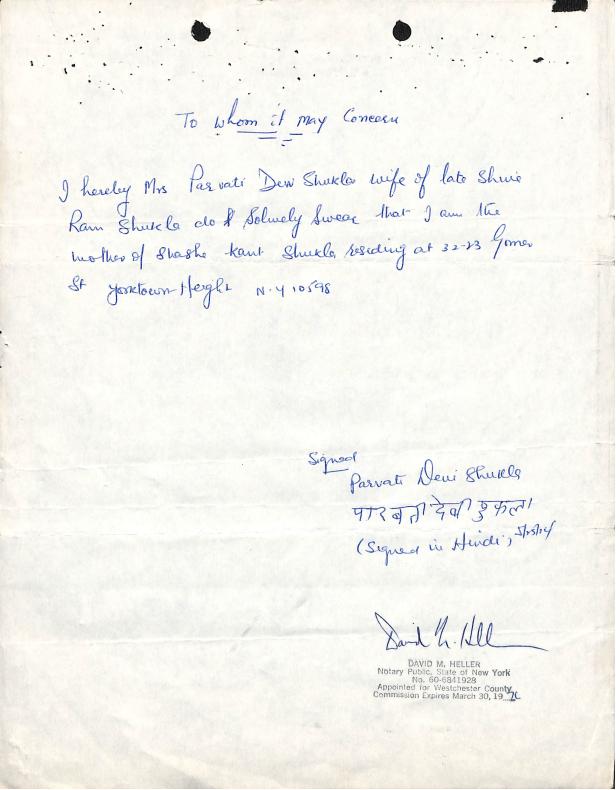 To whom it may Concern
I hereby Mrs Parvati Devi Shukla wife of late Shrie
Ram Shukla do Solmely Swear that I am the
mother of Shashe kant Shukla residing at 32-23 Gomer
St Yorktown Heighs N.Y 10598
Signed
Parvati Devi Shukla
पारबती देवी शुकला
(Signed in Hindi,
David M. Heller
DAVID M. HELLER
Notary Public, State of New York
No. 60-6841928
Appointed for Westchester County
Commission Expires March 30, 19